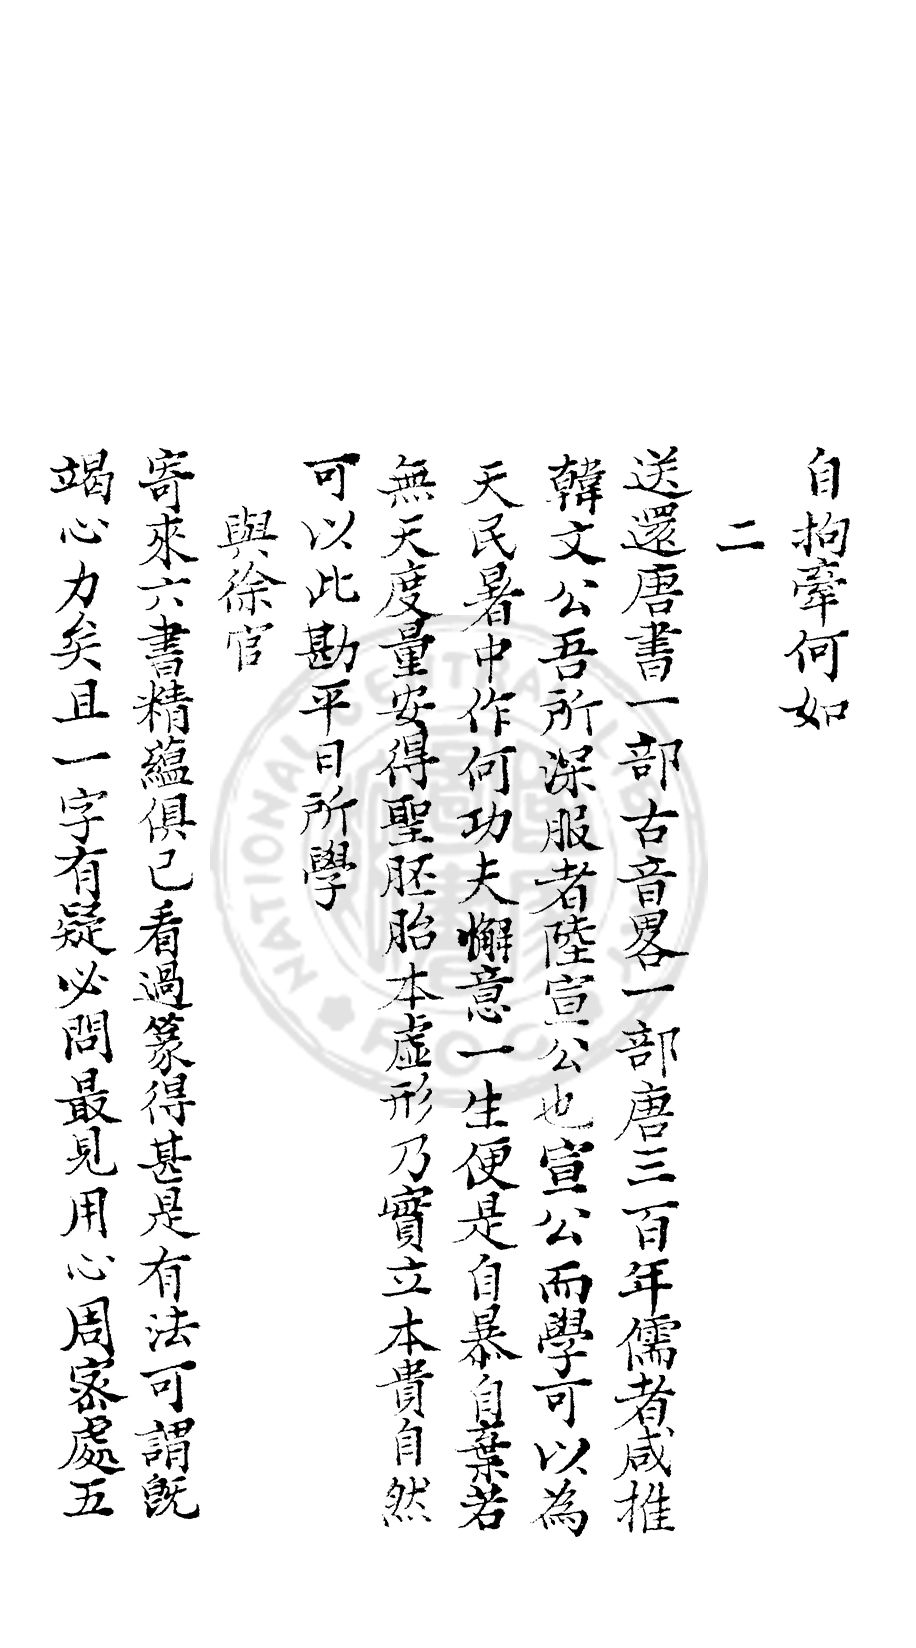 自拘牽何如
二
送還唐書一部古音畧一部唐三百年儒者咸推
韓文公吾所深服者陸宣公也宣公而學可以為
天民暑中作何功夫懈意一生便是自暴自棄若
無天度量安得聖胚胎本虛形乃實立本貴自然
可以此勘平日所學
與徐官
寄來六書精蘊俱已看過篆得甚是有法可謂旣
竭心力矣且一字有疑必問最見用心周宻處五
NATIONAL CENTRAL LIBRARY